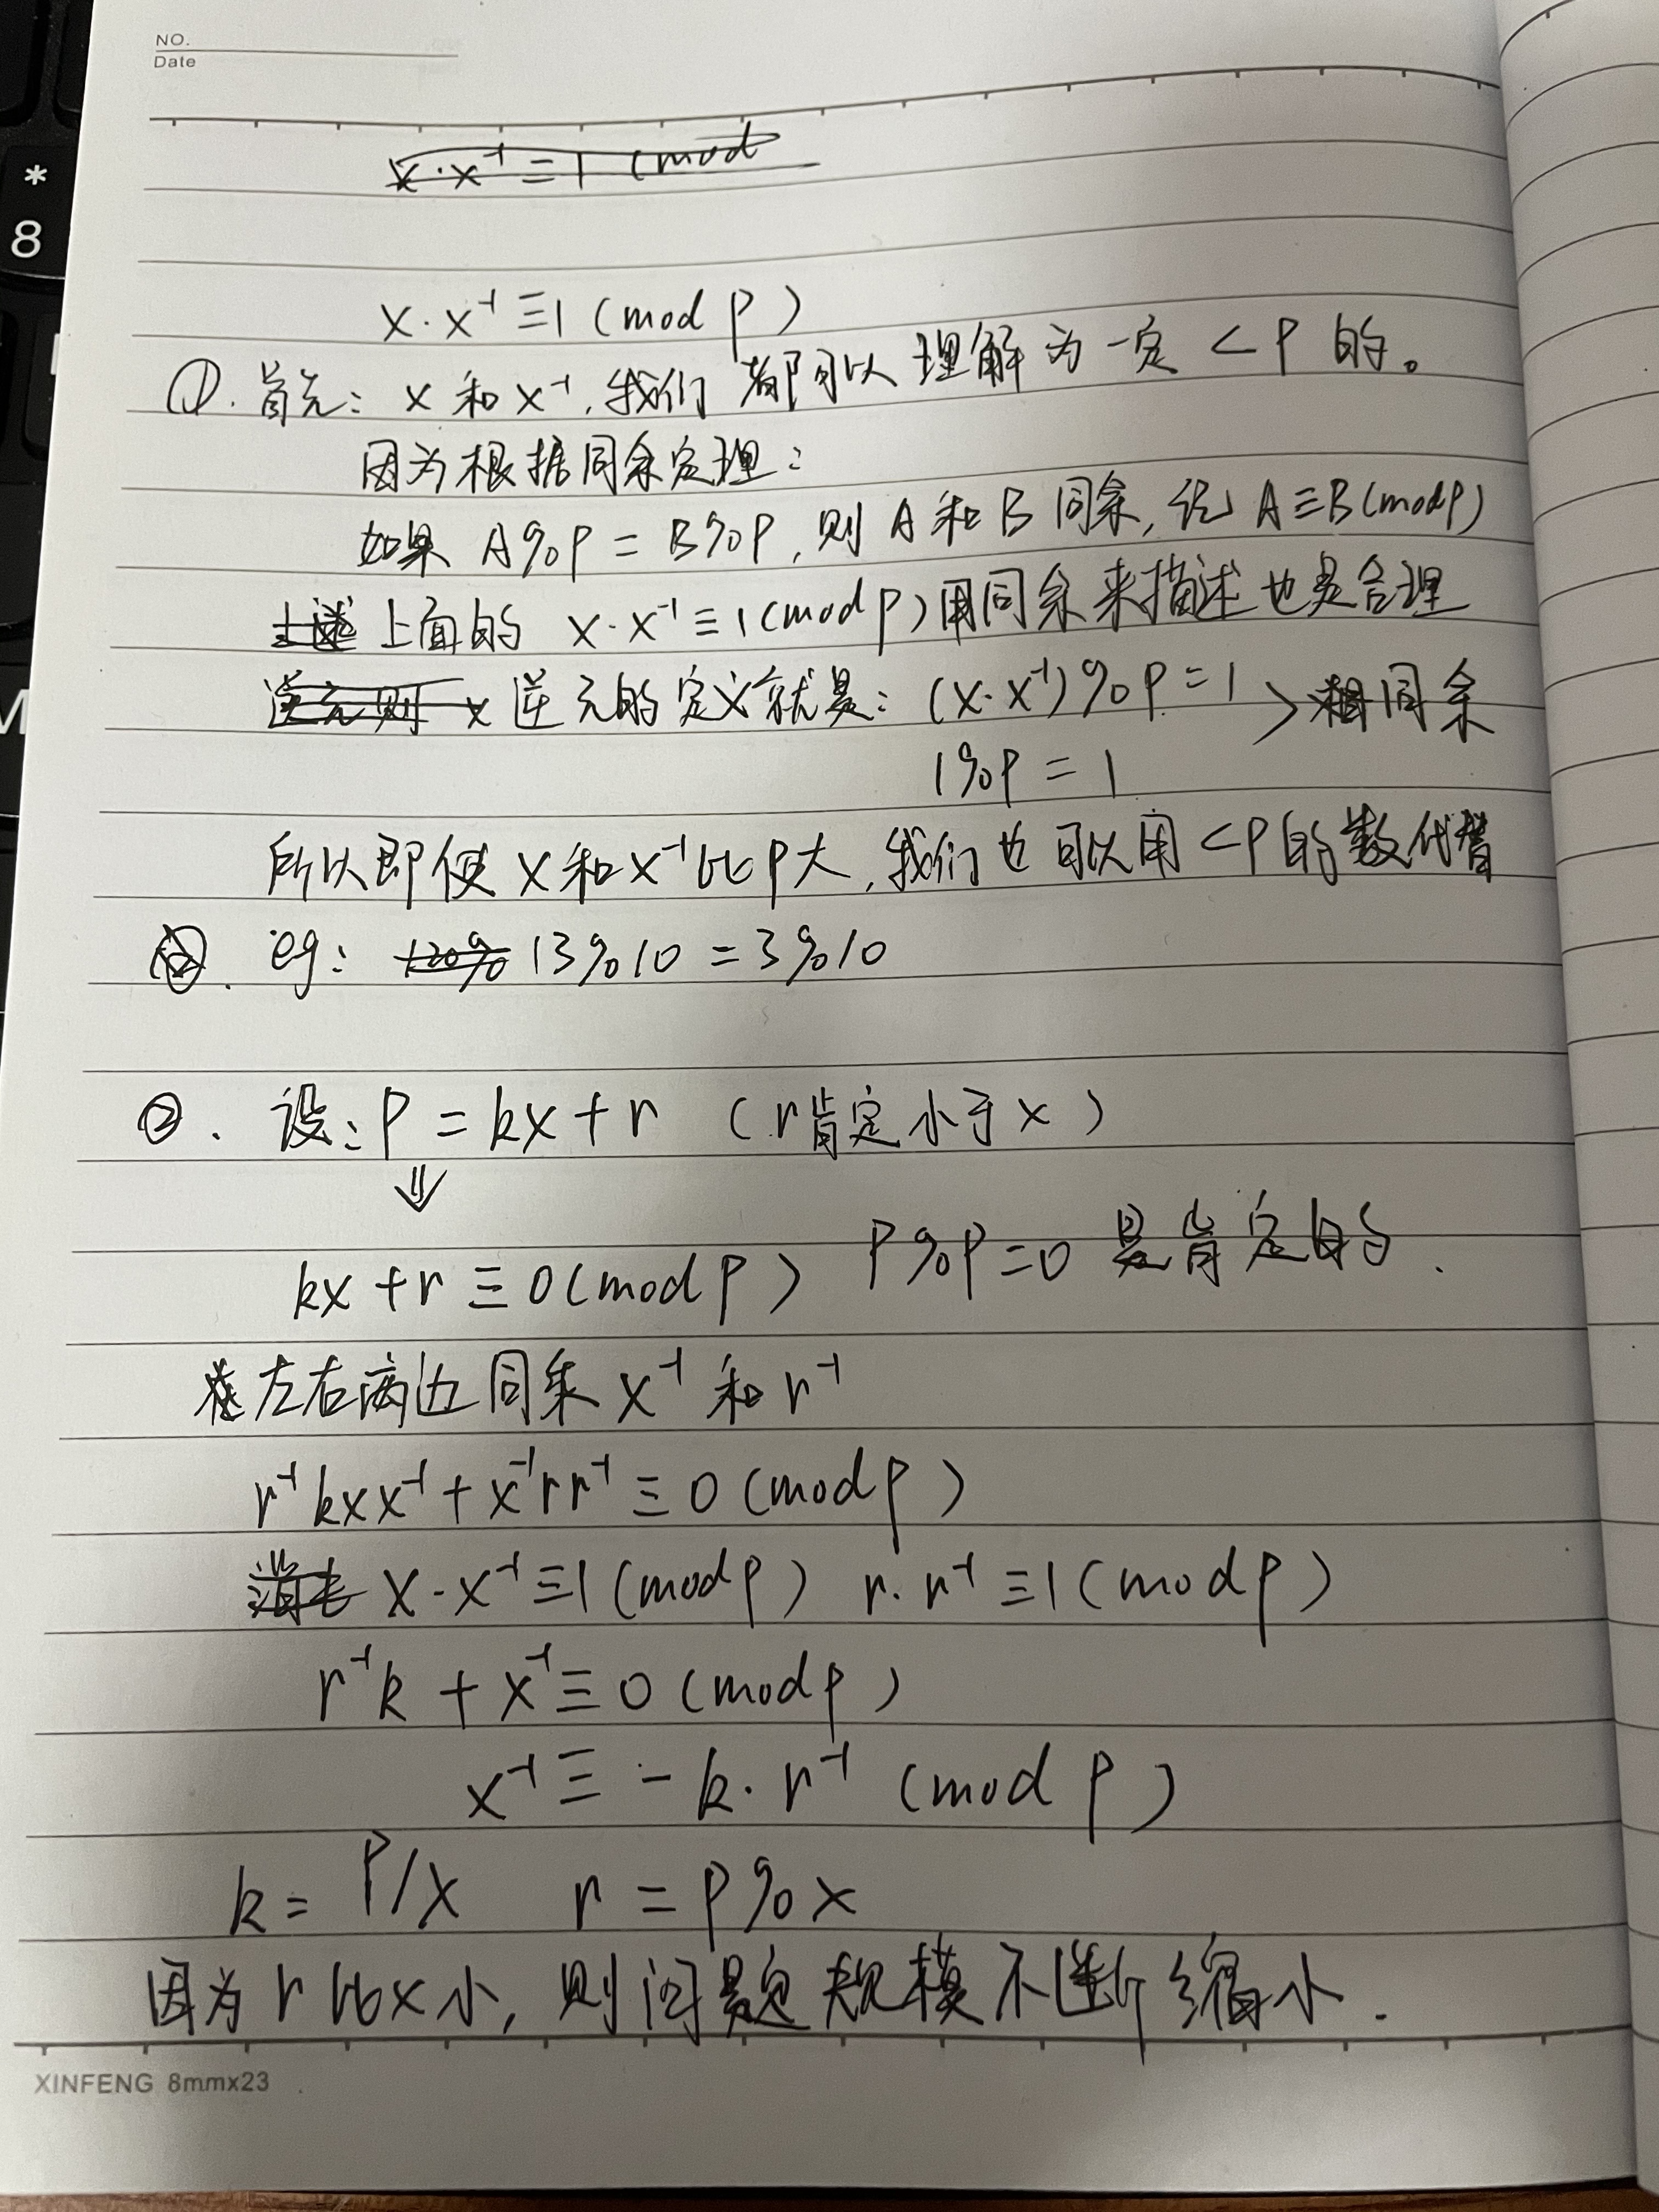 NO.
Date
x·x⁻¹≡1 (mod
x·x⁻¹≡1 (mod p)
①. 首先: x 和 x⁻¹, 我们都可以理解为一定 <p 的。
因为根据同余定理:
如果 A%p = B%p, 则 A 和 B 同余, 记 A≡B(mod p)
上述 上面的 x·x⁻¹≡1(mod p) 用同余来描述也是合理
逆元则 x 逆元的定义就是: (x·x⁻¹)%p=1 > 相同余
1%p = 1
所以即使 x 和 x⁻¹ 比 p 大, 我们也可以用 <p 的数代替
②. eg: 13%10 = 3%10
②. 设: p = kx+r (r肯定小于x)
⇓
kx+r≡0(mod p) p%p=0 是肯定的.
左右两边同乘 x⁻¹ 和 r⁻¹
r⁻¹kxx⁻¹+x⁻¹rr⁻¹≡0 (mod p)
x·x⁻¹≡1(mod p) r·r⁻¹≡1(mod p)
r⁻¹k+x⁻¹≡0 (mod p)
x⁻¹≡-k·r⁻¹ (mod p)
k= p/x r = p%x
因为r比x小, 则问题规模不断缩小.
XINFENG 8mmx23
*
8
M